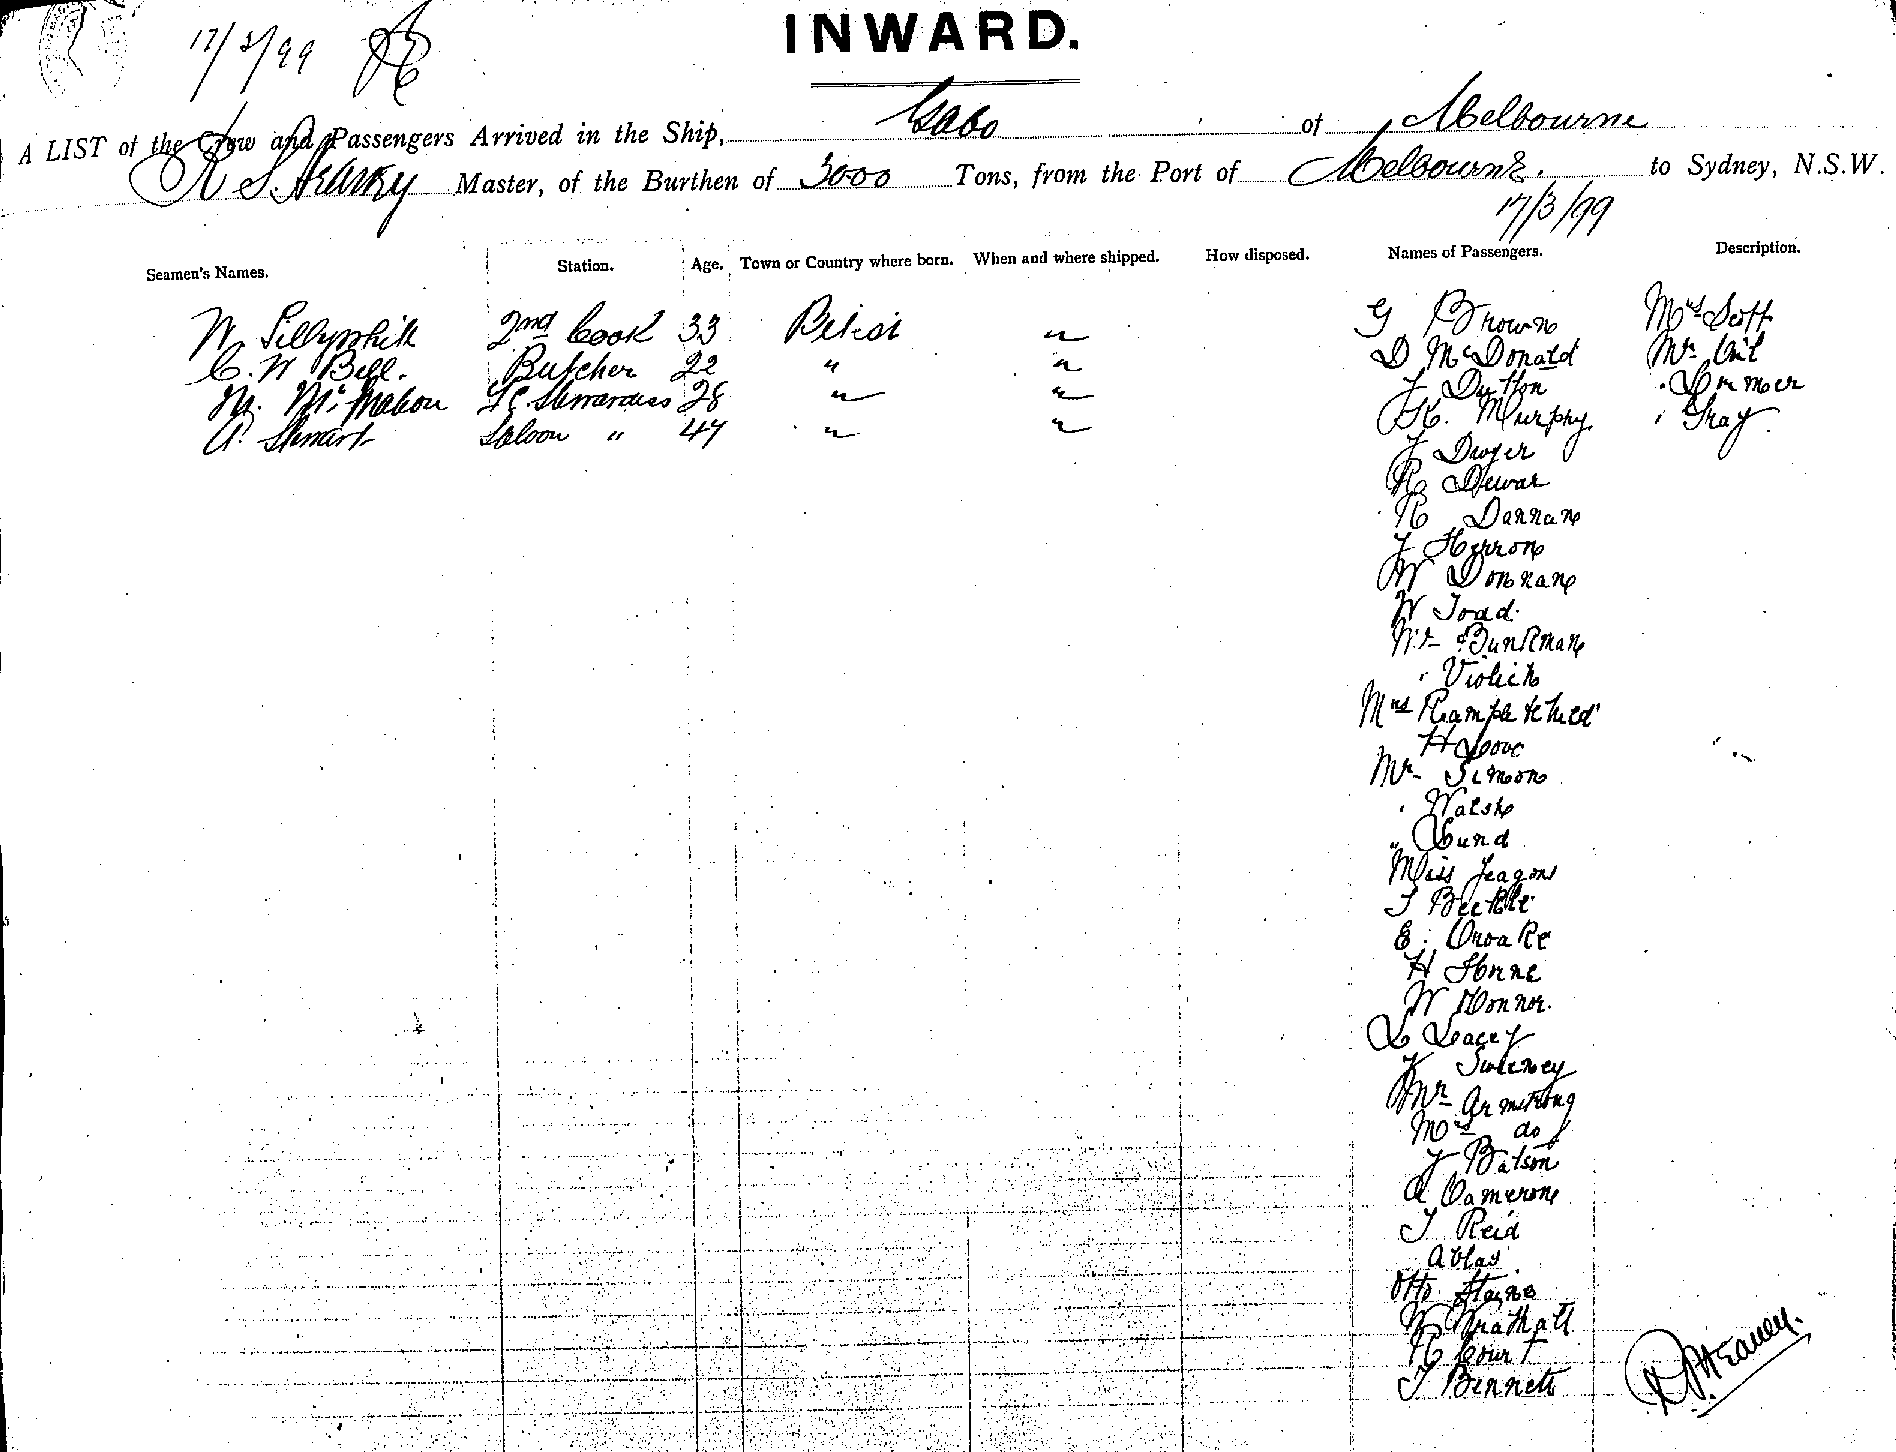 INWARD.
17/3/99
A LIST of the Crow and Passengers Arrived in the Ship, Gabo of Melbourne
Master, of the Burthen of 3000 Tons, from the Port of Melbourne. to Sydney, N.S.W.
17/3/99
Seamen's Names. Station. Age. Town or Country where born. When and where shipped. How disposed. Names of Passengers. Description.
W. 2nd Cook 33 " G Brown Mrs Scott
C. W Bell. Butcher 22 " " D McDonald Mr
M. McMahon 28 " " J Dutton "
A. Stewart Saloon " 47 " " H. Murphy " Gray
J Dwyer
R Dewar
R Dannan
J Herron
W Donnan
W Todd
Mr Bunkman
" Violich
Mrs Rample & child
H Love
Mr Simon
" Walsh
" Lund
Miss Feagons
T
E. Croake
H Horne
W Connor.
L Lacey
J Sweeney
Mr Armstrong
Mrs do
J Batson
A Cameron
J Reid
Otto
W Wrathall
R Court
J Bennett